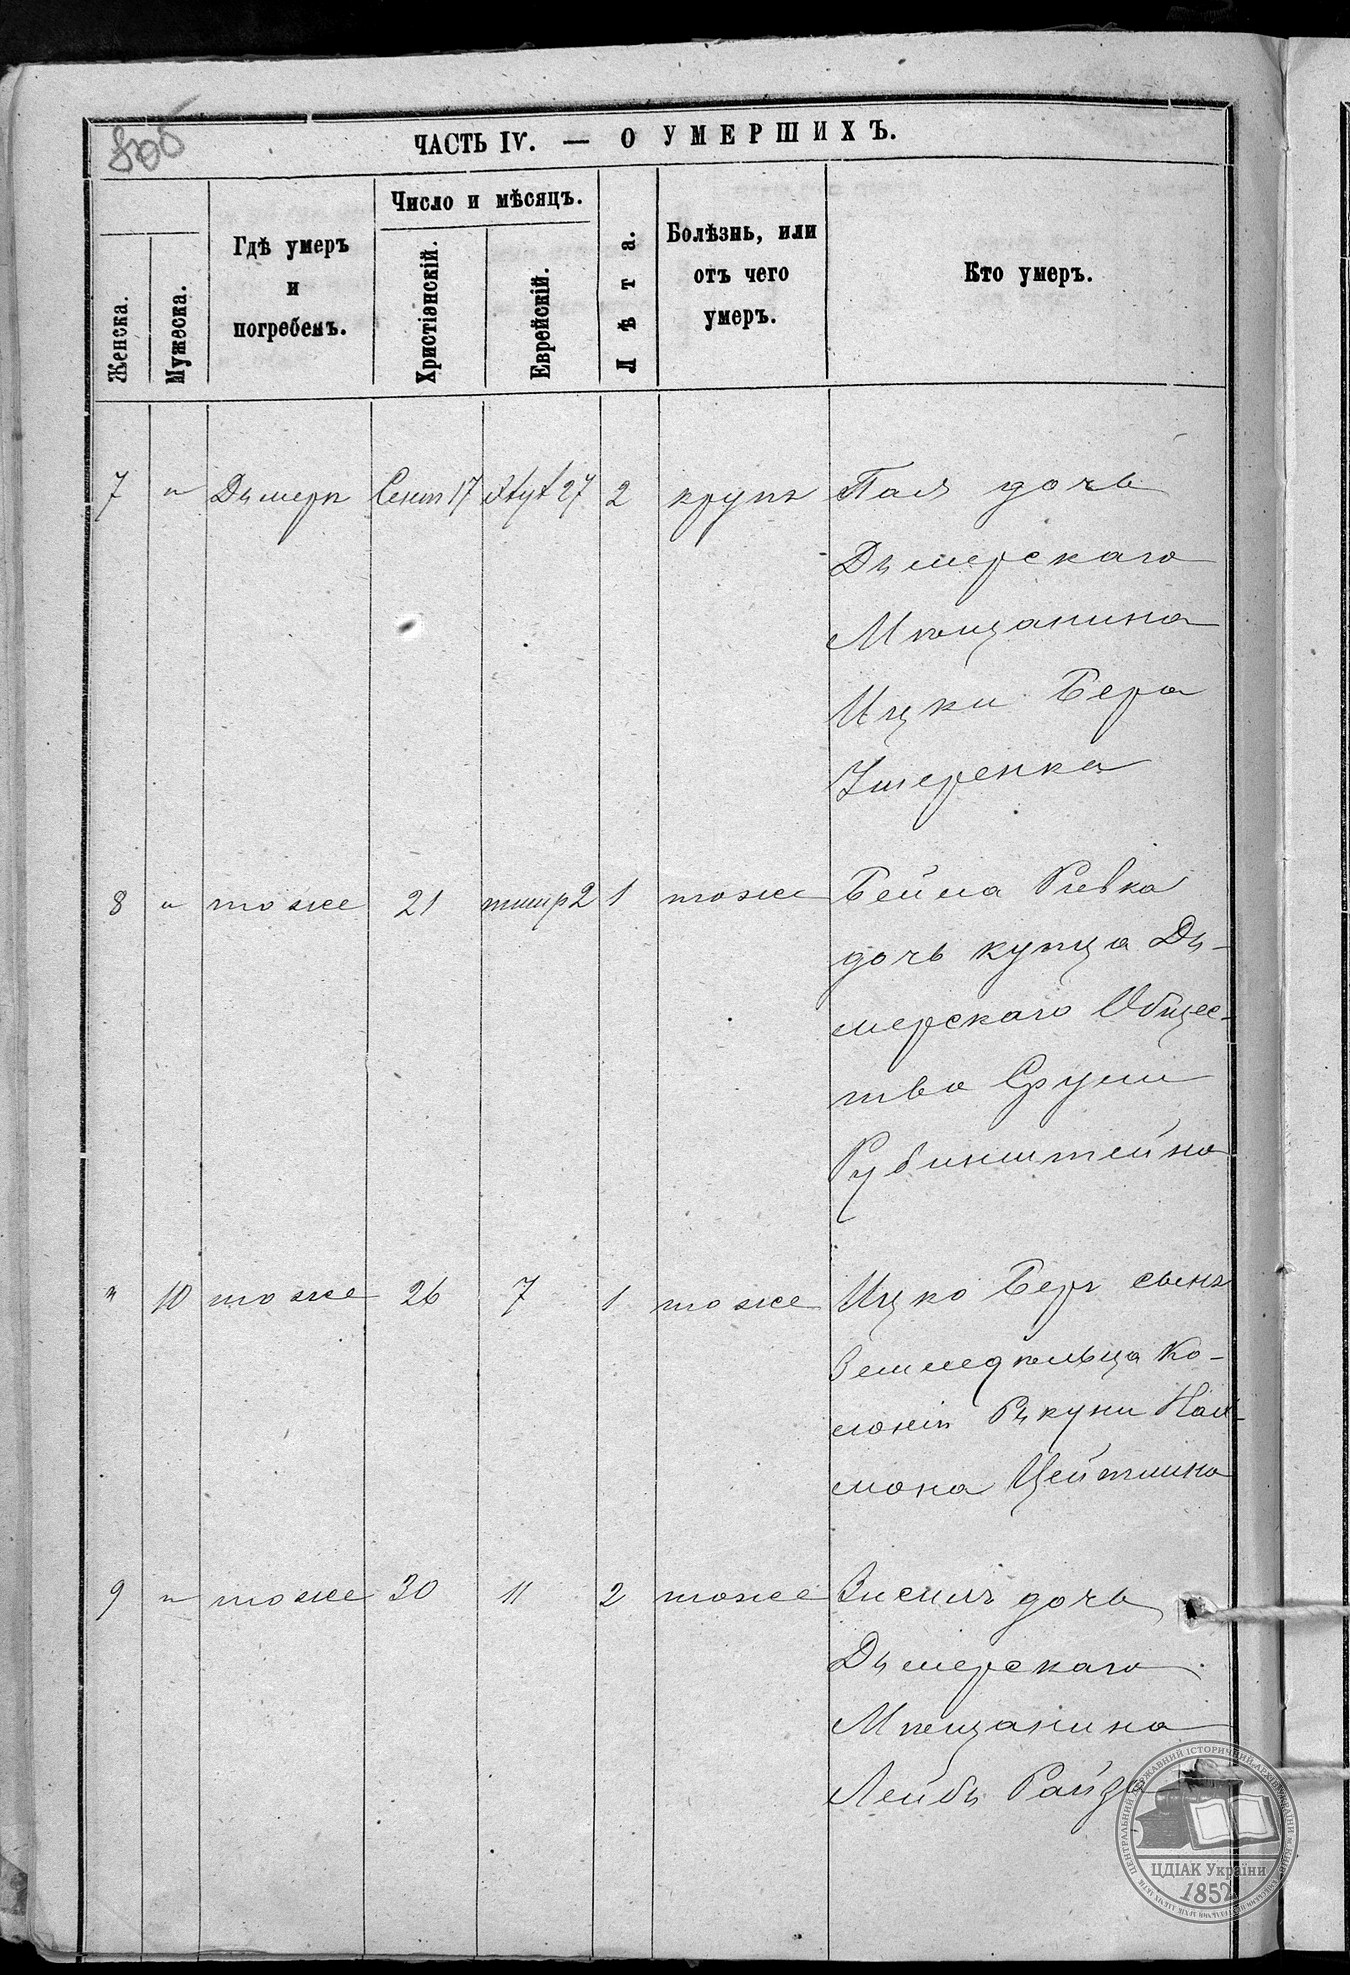 ЧАСТЬ IV. — О УМЕРШИХЪ.
Женска.
Мужеска.
Гдѣ умеръ
и
погребенъ.
Число и мѣсяцъ.
Христіянскій.
Еврейскій.
Лѣта.
Болѣзнь, или
отъ чего
умеръ.
Кто умеръ.
7 " Дымеръ Сент 17 27 2 крупъ
дочь
Дымерскаго
Мѣщанина
Ицки Бера
Ушеренка
8 " тоже 21 тишр 2 1 тоже Бейла Ривка
дочь купца Ды-
мерскаго Общес-
тва Сруля
Рубинштейна
" 10 тоже 26 7 1 тоже Ицко Беръ сынъ
Земледѣльца Ко-
лоніи Рыкуни
Цейтлина
9 " тоже 30 11 2 тоже дочь
Дымерскаго
Мѣщанина
Лейбы
ЦЕНТРАЛЬНИЙ ДЕРЖАВНИЙ ІСТОРИЧНИЙ АРХІВ УКРАЇНИ
ЦДІАК України
1852